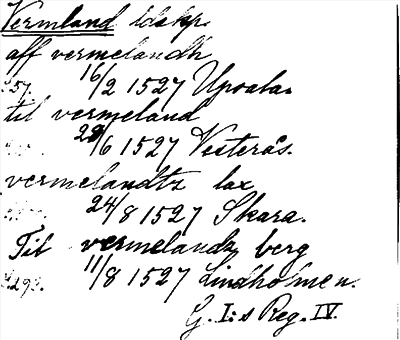 Vermland ldskp.
aff vermelandh
57. 16/2 1527 Upsala.
til vermeland
28/6 1527 Vesterås.
vermelandtz lax
24/8 1527 Skara.
Til vermelandz berg
293. 11/8 1527 Lindholmen.
G. I:s Reg. IV.